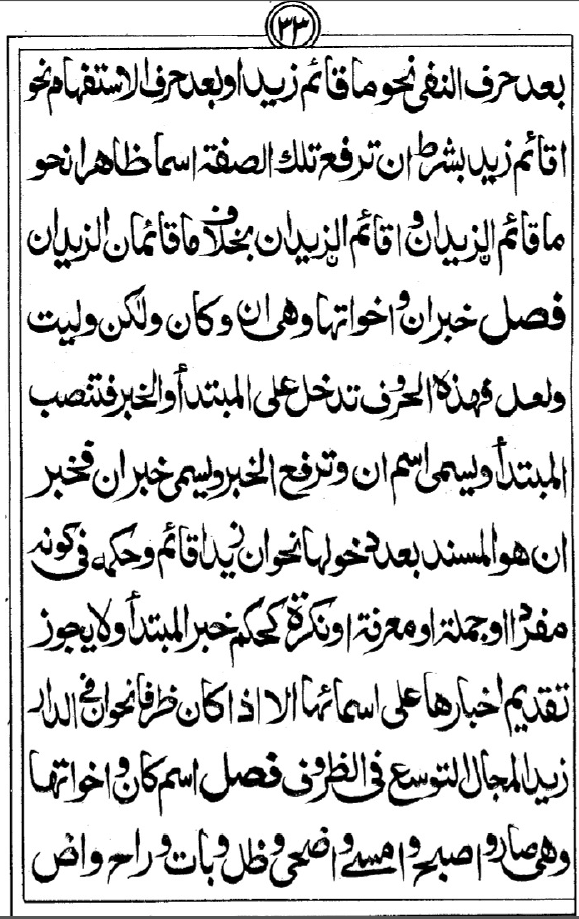 ٣٣
بعد حرف النفى نحو ما قائم زيد او بعد حرف الاستفهام نحو
اقائم زيد بشرط ان ترفع تلك الصفة اسما ظاهرا نحو
ما قائم الزيدان و اقائم الزيدان بخلاف ما قائمان الزيدان
فصل خبر ان و اخواتها وهى ان و كان ولكن وليت
ولعل فهذه الحروف تدخل على المبتدأ والخبر فتنصب
المبتدأ ويسمى اسم ان وترفع الخبر ويسمى خبر ان فخبر
ان هو المسند بعد دخولها نحو ان زيدا قائم وحكمه فى كونه
مفردا او جملة او معرفة او نكرة كحكم خبر المبتدأ ولا يجوز
تقديم اخبارها على اسمائها الا اذا كان ظرفا نحو ان فى الدار
زيدا لمجال التوسع فى الظروف فصل اسم كان و اخواتها
وهى صار و اصبح و امسى و اضحى و ظل و بات و راح واض